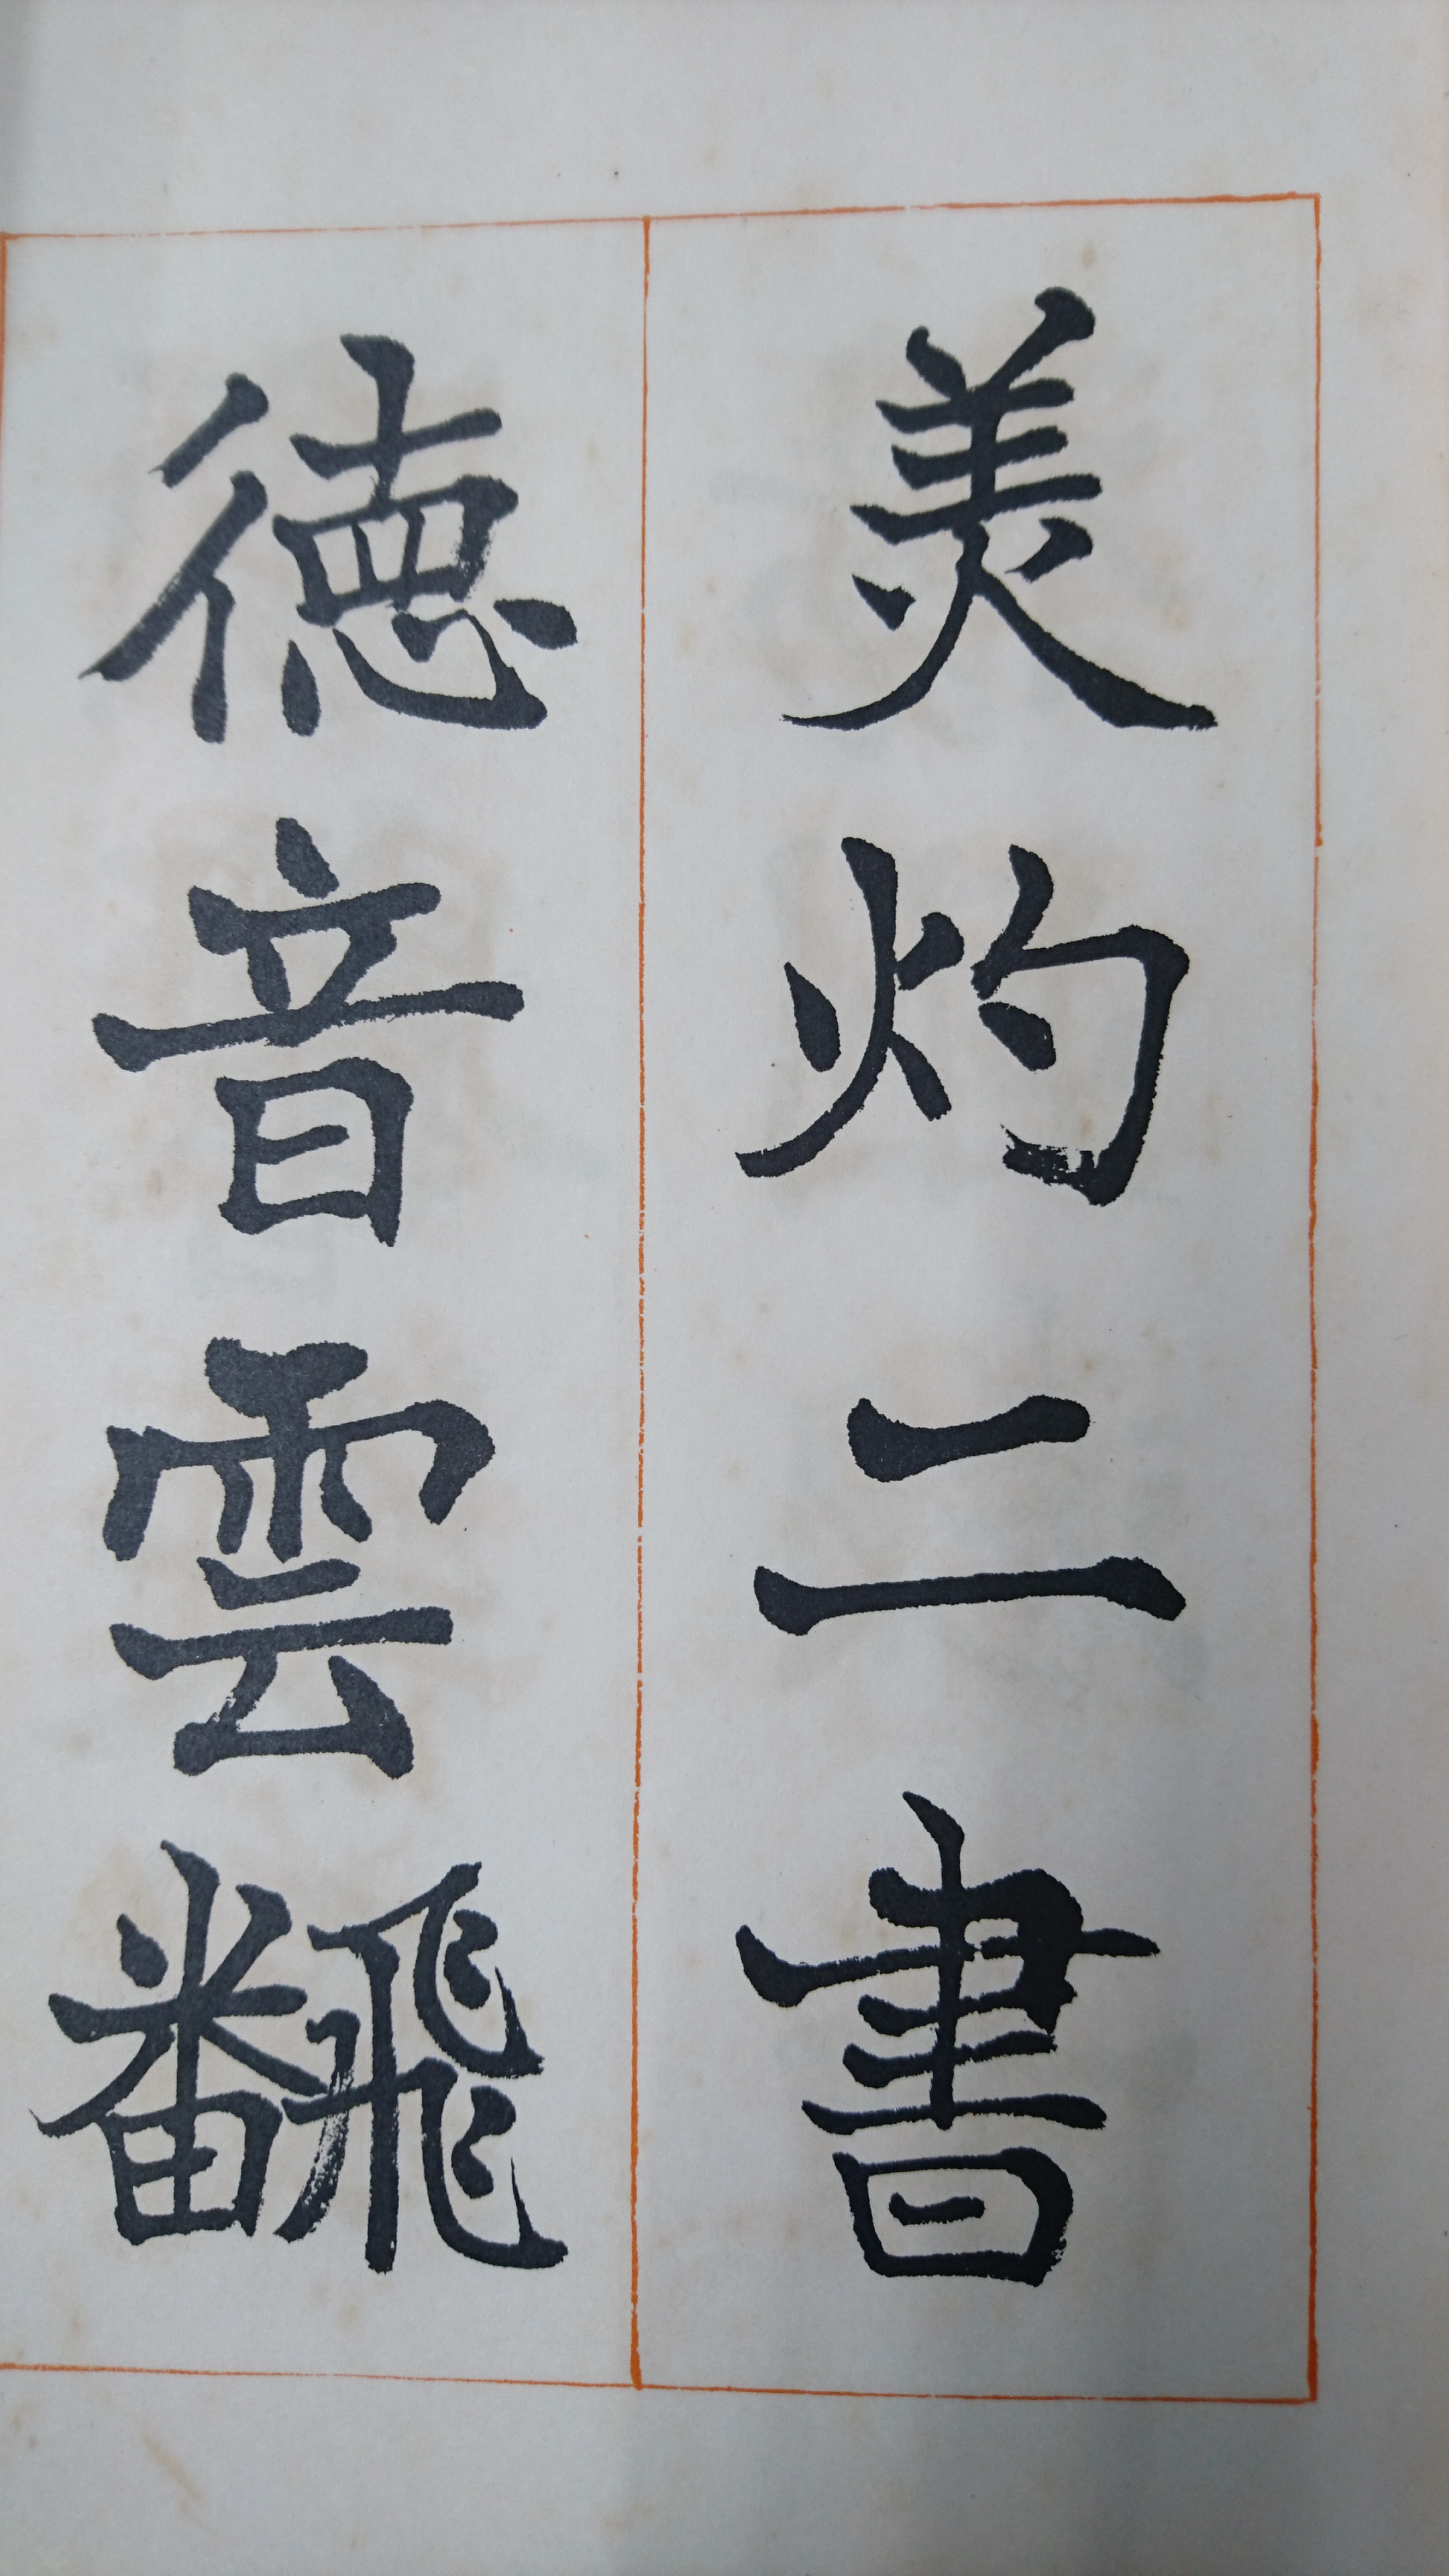 美灼二書
徳音雲飜